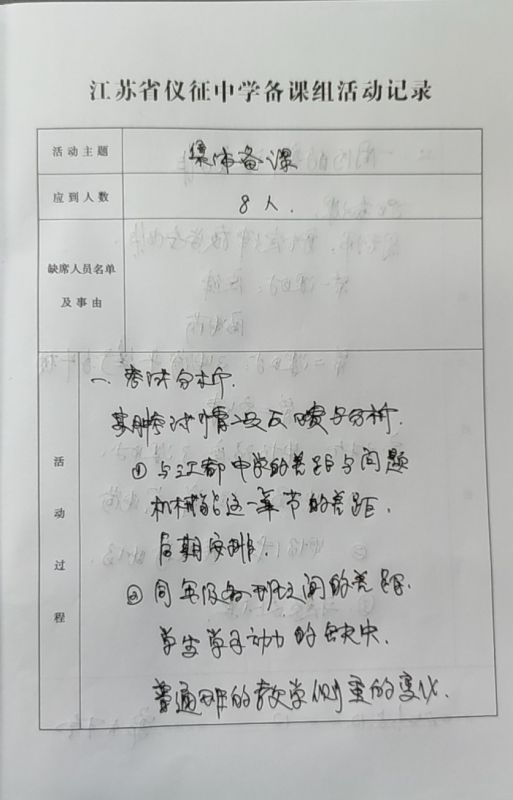 江苏省仪征中学备课组活动记录
活动主题
集体备课
应到人数
8人.
缺席人员名单
及事由
活动过程
一、考试分析.
考试情况反馈与分析.
① 与江都中学的差距与问题
机械能这一章节的差距.
后期安排.
② 同年级各班之间的差距.
学生学习动力的缺失.
普通班的教学侧重的变化.